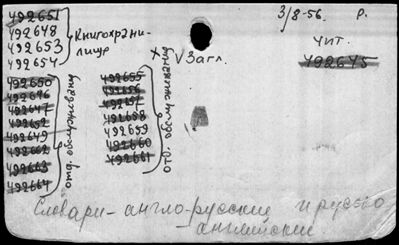 492651
492648
492653
492654
Книгохрани-
лище
492650
492646
492647
492652
492649
492662
492663
492664
отд. обслуживания
492655
492656
492657
492658
492659
492660
492661
отд. обслуживания
X
V Загл.
3/8-56. р.
чит.
492645
Словари - англо-русские и русско
- английские.